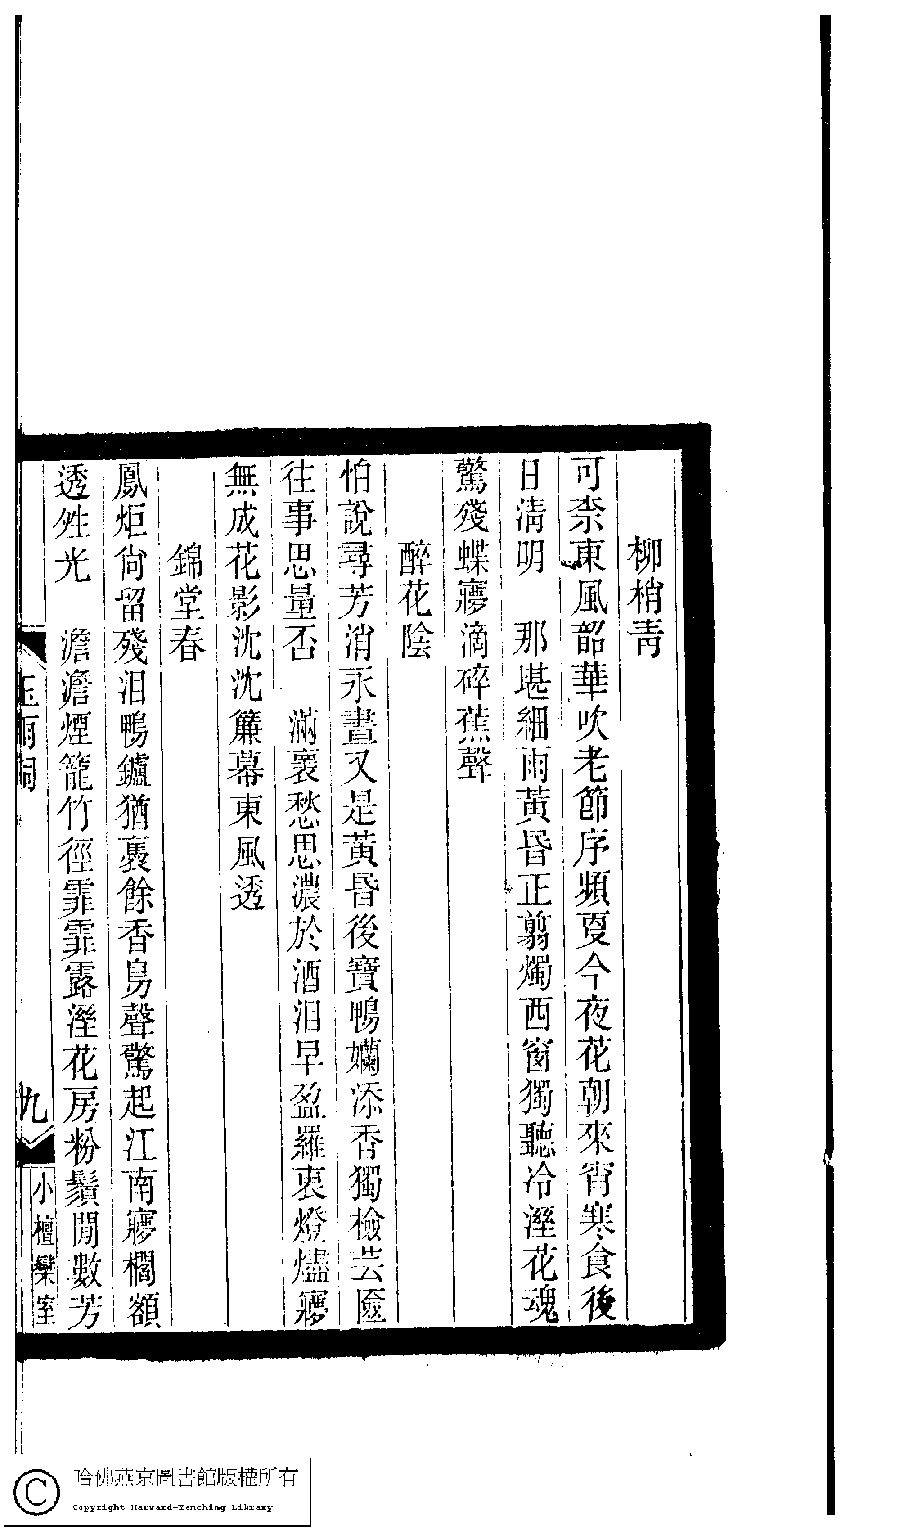 柳梢青
可柰東風韶華吹老節序頻夏今夜花朝來宵寒食後
日淸明　那堪細雨黃昏正翦燭西窗獨聽冷溼花魂
驚殘蝶㝱滴碎蕉聲
醉花陰
怕說尋芳消永晝又是黃昏後寶鴨嬾添香獨檢芸匳
往事思量否　滿褱愁思濃於酒泪早盈羅褏燈燼㝱
無成花影沈沈簾幕東風透
錦堂春
鳳炬尙留殘泪鴨鑪猶裛餘香鳥聲驚起江南㝱櫊額
透甡光　澹澹煙籠竹徑霏霏露溼花房粉鬚閒數芳
玉雨詞
九
小檀欒室
哈佛燕京圖書館版權所有
Copyright Harvard-Yenching Library